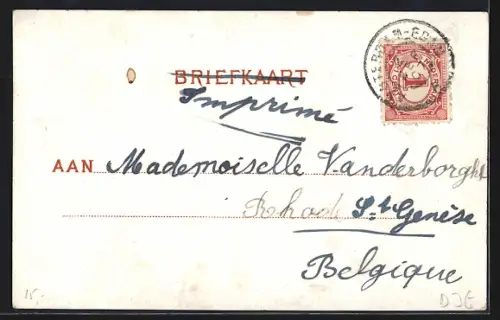 BRIEFKAART
Imprimé
AAN Mademoiselle Vanderborght
Rhode St. Genèse
Belgique
1
15,-
DJE